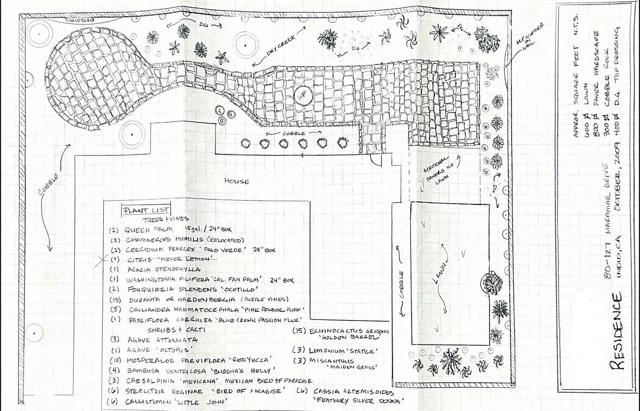 DG
DRY CREEK
DG
COBBLE
COBBLE
HOUSE
ADDITIONAL PAVERS NO LAWN
COBBLE
LAWN
PLANT LIST
TREES & VINES
(2) QUEEN PALM 15gal / 24" BOX
(3) CHAMAEROPS HUMILIS (RELOCATED)
(2) CERCIDIUM PRAECOX 'PALO VERDE' 24" BOX
(1) CITRUS 'MEYER LEMON'
(1) ACACIA STENOPHYLLA
(1) WASHINGTONIA FILIFERA 'CAL FAN PALM' 24" BOX
(2) FOUQUIERIA SPLENDENS 'OCOTILLO'
DURANTA OR HARDENBERGIA (PURPLE VINES)
(5) CALLIANDRA HAEMATOCEPHALA 'PINK POWDER PUFF'
(1) PASSIFLORA CAERULEA 'BLUE CROWN PASSION FLWR'
SHRUBS & CACTI
(3) AGAVE ATTENUATA
(1) AGAVE 'OCTOPUS'
(10) HESPERALOE PARVIFLORA 'RED YUCCA'
(4) BAMBUSA VENTRICOSA 'BUDDHA'S BELLY'
(3) CAESALPINIA 'MEXICANA' MEXICAN BIRD OF PARADISE
(6) STRELITZIA REGINAE 'BIRD OF PARADISE'
(6) CALLISTEMON 'LITTLE JOHN'
(15) ECHINOCACTUS GRUSONII
'GOLDEN BARREL'
(3) LIMONIUM 'STATICE'
(3) MISCANTHUS
'MAIDEN GRASS'
(6) CASSIA ARTEMISIOIDES
'FEATHERY SILVER SENNA'
APPROX. SQUARE FEET N.T.S.
600 LAWN
800 PAVER HARDSCAPE
300 COBBLE ROCK
400 D.G. TOP DRESSING
RESIDENCE
80-127 MIRAMAR DRIVE
INDIO, CA OCTOBER, 2009